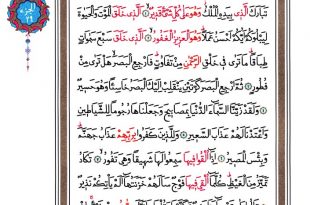 الجزء
٢٩
تَبَارَكَ الَّذِي بِيَدِهِ الْمُلْكُ وَهُوَ عَلَى كُلِّ شَيْءٍ قَدِيرٌ الَّذِي خَلَقَ الْمَوْتَ وَالْحَيَاةَ
لِيَبْلُوَكُمْ أَيُّكُمْ أَحْسَنُ عَمَلًا وَهُوَ الْعَزِيزُ الْغَفُورُ الَّذِي خَلَقَ سَبْعَ سَمَوَاتٍ
طِبَاقًا مَا تَرَى فِي خَلْقِ الرَّحْمَنِ مِنْ تَفَاوُتٍ فَارْجِعِ الْبَصَرَ هَلْ تَرَى مِنْ
فُطُورٍ ثُمَّ ارْجِعِ الْبَصَرَ كَرَّتَيْنِ يَنْقَلِبْ إِلَيْكَ الْبَصَرُ خَاسِئًا وَهُوَ حَسِيرٌ
وَلَقَدْ زَيَّنَّا السَّمَاءَ الدُّنْيَا بِمَصَابِيحَ وَجَعَلْنَاهَا رُجُومًا لِلشَّيَاطِينِ
وَأَعْتَدْنَا لَهُمْ عَذَابَ السَّعِيرِ وَلِلَّذِينَ كَفَرُوا بِرَبِّهِمْ عَذَابُ جَهَنَّمَ
وَبِئْسَ الْمَصِيرُ إِذَا أُلْقُوا فِيهَا سَمِعُوا لَهَا شَهِيقًا وَهِيَ تَفُورُ تَكَادُ
تَمَيَّزُ مِنَ الْغَيْظِ كُلَّمَا أُلْقِيَ فِيهَا فَوْجٌ سَأَلَهُمْ خَزَنَتُهَا أَلَمْ يَأْتِكُمْ نَذِيرٌ